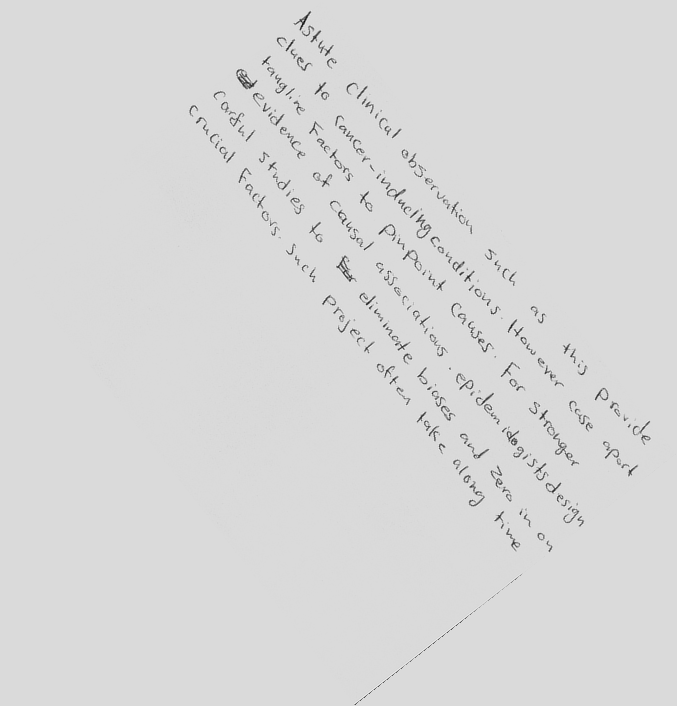 Astute clinical observation such as this provide
clues to cancer-inducing conditions. However case apart
tangline Factors to pinpoint causes. For stronger
evidence of causal associations. epidemidogists design
carful studies to eliminate biases and zero in on
crucial Factors. such project often take along time